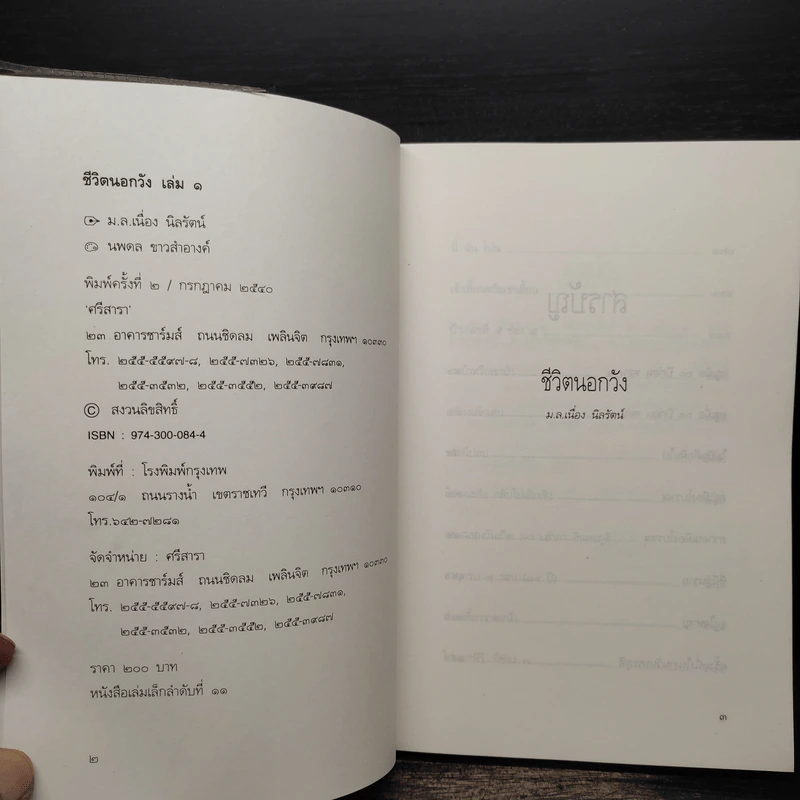 ชีวิตนอกวัง เล่ม ๑
ม.ล.เนื่อง นิลรัตน์
นพดล ขาวสำอางค์
พิมพ์ครั้งที่ ๒ / กรกฎาคม ๒๕๔๐
'ศรีสารา'
๒๓ อาคารชาร์มส์ ถนนชิดลม เพลินจิต กรุงเทพฯ ๑๐๓๓๐
โทร. ๒๕๕-๕๕๙๗-๘, ๒๕๕-๗๓๒๖, ๒๕๕-๗๘๓๑,
๒๕๕-๓๕๓๒, ๒๕๕-๓๕๕๒, ๒๕๕-๓๙๘๗
© สงวนลิขสิทธิ์
ISBN : 974-300-084-4
พิมพ์ที่ : โรงพิมพ์กรุงเทพ
๑๐๔/๑ ถนนรางน้ำ เขตราชเทวี กรุงเทพฯ ๑๐๓๑๐
โทร.๖๔๒-๗๒๘๑
จัดจำหน่าย : ศรีสารา
๒๓ อาคารชาร์มส์ ถนนชิดลม เพลินจิต กรุงเทพฯ ๑๐๓๓๐
โทร. ๒๕๕-๕๕๙๗-๘, ๒๕๕-๗๓๒๖, ๒๕๕-๗๘๓๑,
๒๕๕-๓๕๓๒, ๒๕๕-๓๔๕๒, ๒๕๕-๓๙๘๗
ราคา ๒๐๐ บาท
หนังสือเล่มเล็กลำดับที่ ๑๑
๒
ชีวิตนอกวัง
ม.ล.เนื่อง นิลรัตน์
๓